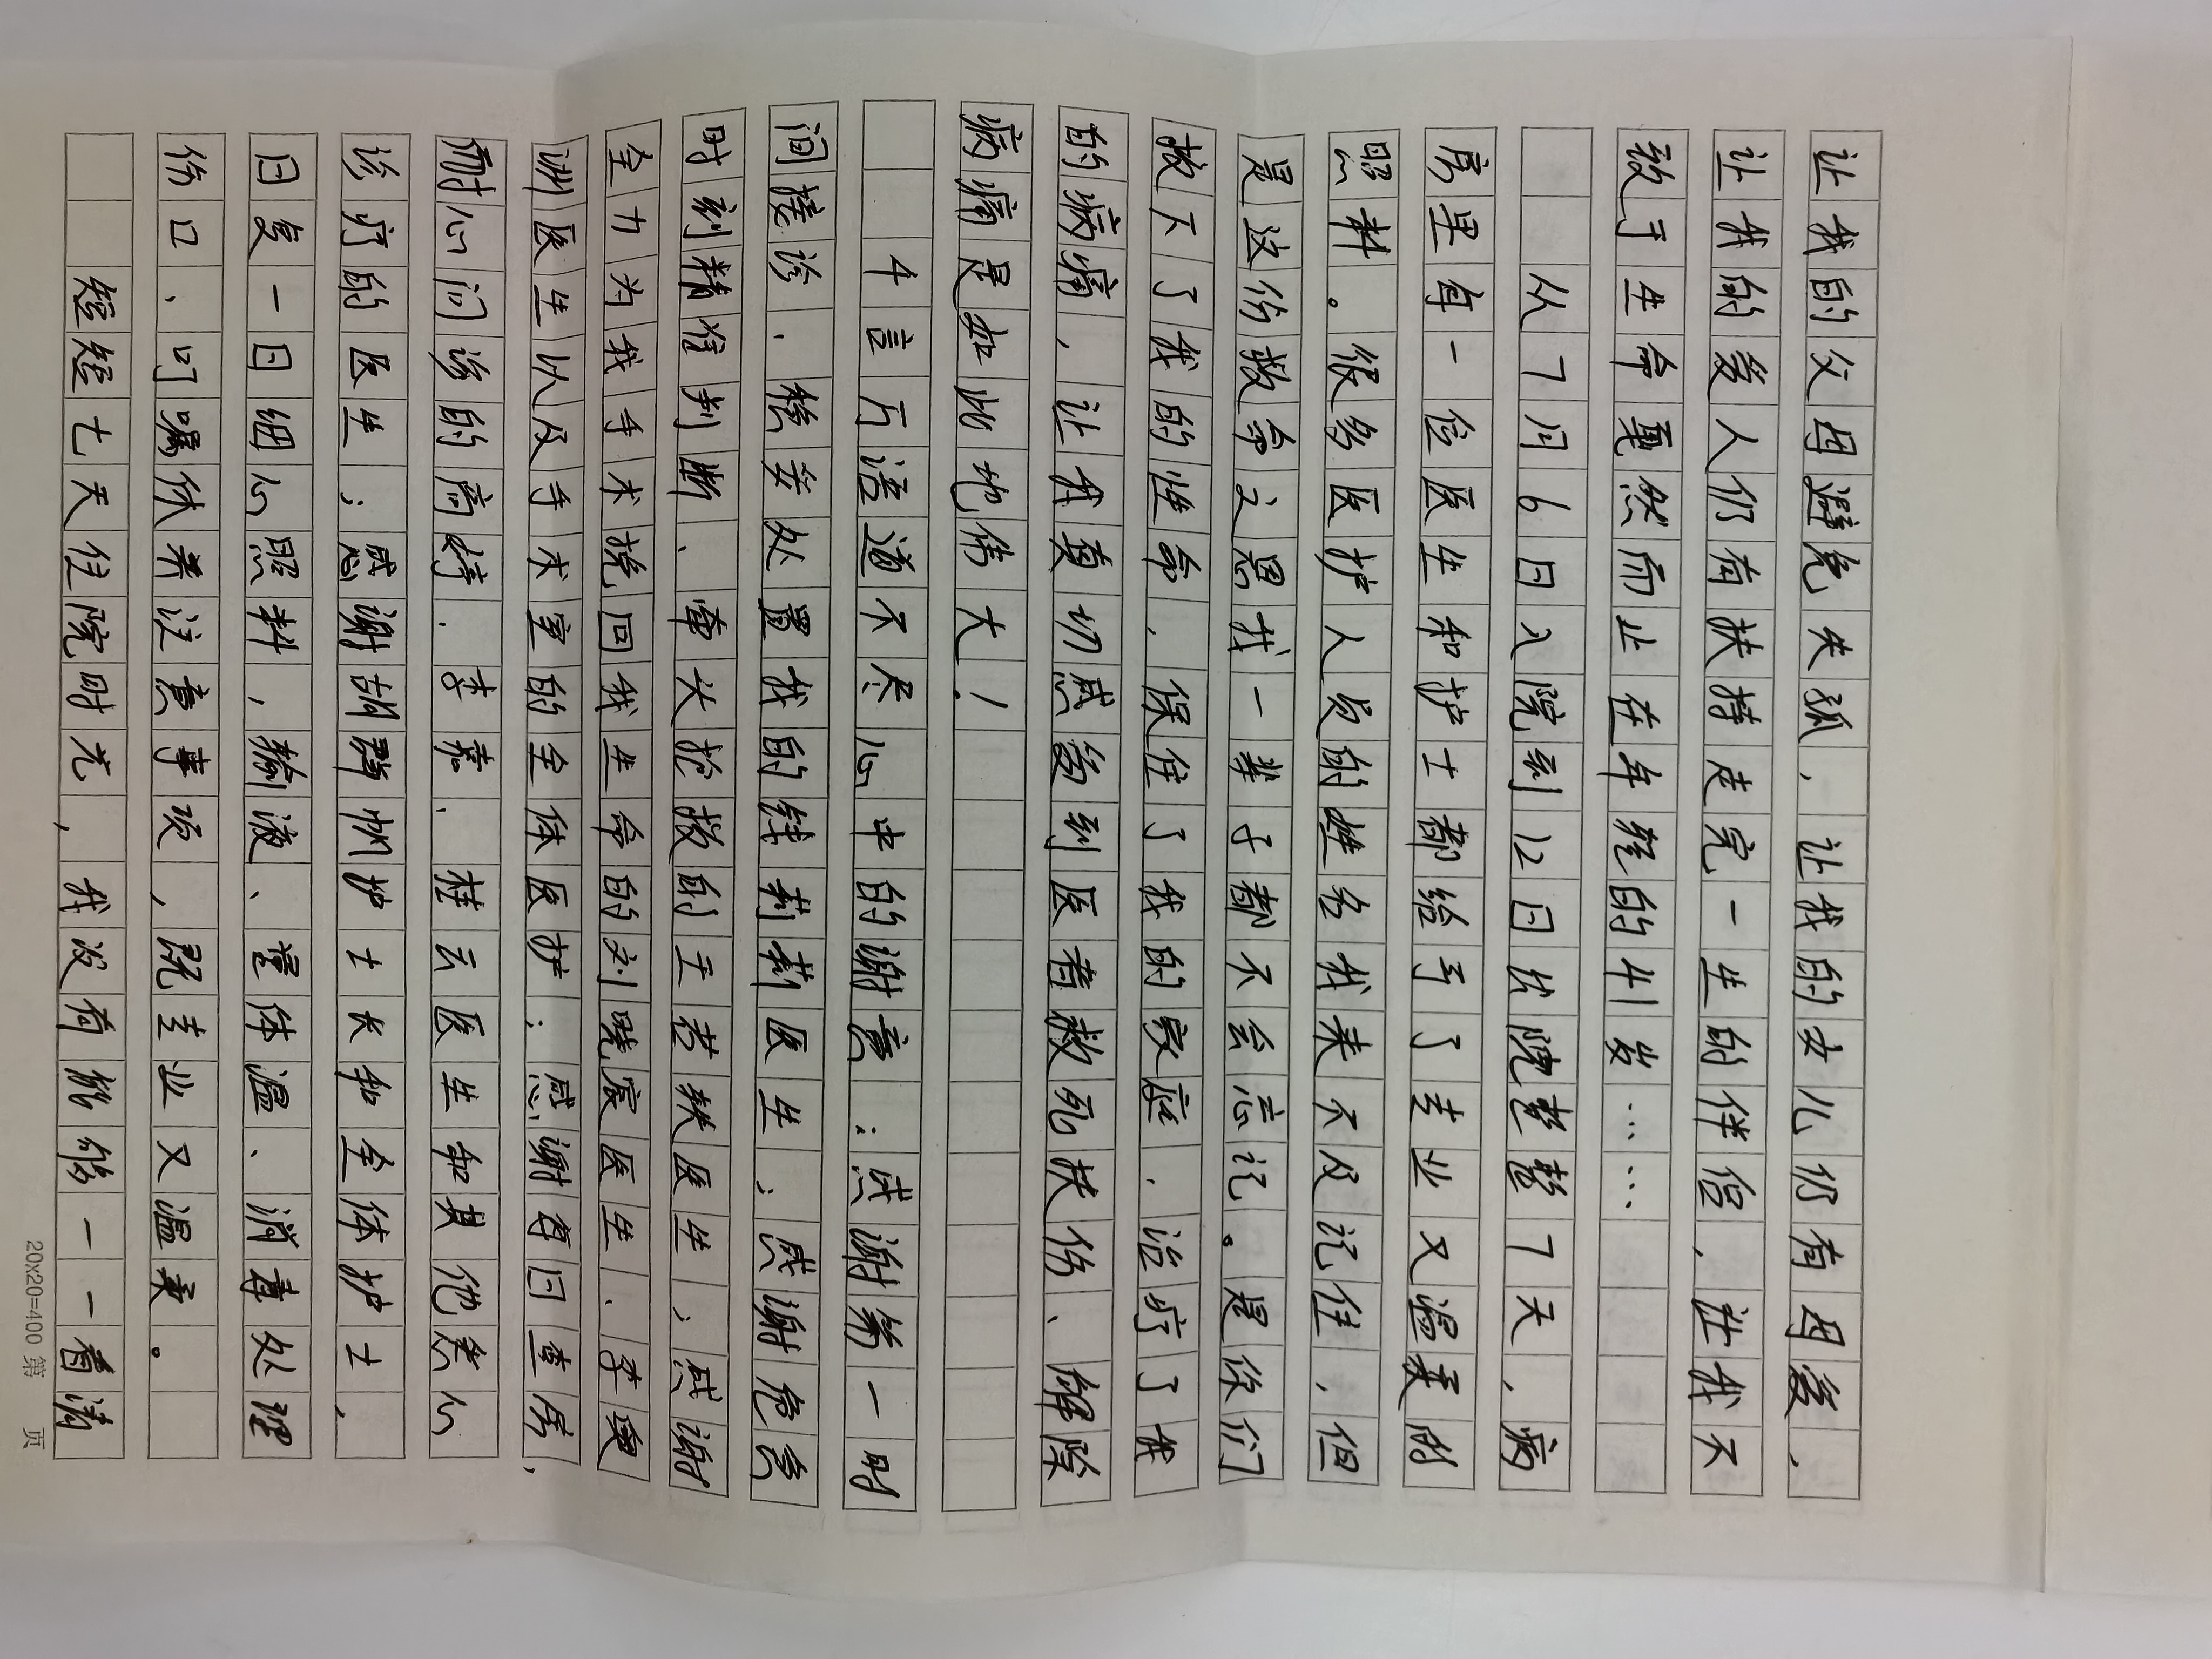 让我的父母避免失孤，让我的女儿仍有母爱，
让我的爱人仍有扶持走完一生的伴侣，让我不
致于生命戛然而止在年轻的41岁……
从7月6日入院到12日出院整整7天，病
房里每一位医生和护士都给予了专业又温柔的
照料。很多医护人员的姓名我来不及记住，但
是这份救命之恩我一辈子都不会忘记。是你们
救下了我的性命，保住了我的家庭，治疗了我
的病痛，让我真切感受到医者救死扶伤、解除
病痛是如此地伟大！
千言万语道不尽心中的谢意：感谢第一时
间接诊、稳妥处置我的钱莉莉医生；感谢危急
时刻精准判断、大抢救的王若轶医生；感谢
全力为我手术挽回我生命的刘晓宸医生、李奥
洲医生以及手术室的全体医护；感谢每日查房、
耐心问诊的商婷、李嘉、桂云医生和其他悉心
诊疗的医生；感谢胡群帆护士长和全体护士，
日复一日细心照料，输液、量体温、消毒处理
伤口、叮嘱休养注意事项，既专业又温柔。
短短七天住院时光，我没有能够一一看清
20×20=400 第 页